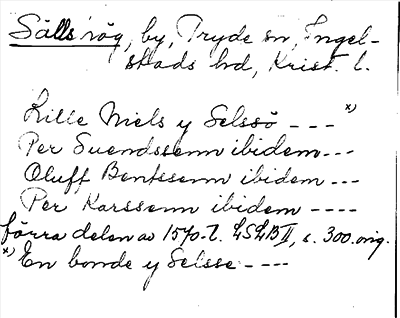 Sälls rög, by, Tryde sn, Ingel-
stads hd, Krist. l.
Lille Niels y Selssö --- x)
Per Suendssenn ibidem---
Oluff Bentssenn ibidem---
Per Karssenn ibidem ----
förra delen av 1570-t. LSLB II, s. 300. orig.
x) En bonde y Selsse ----